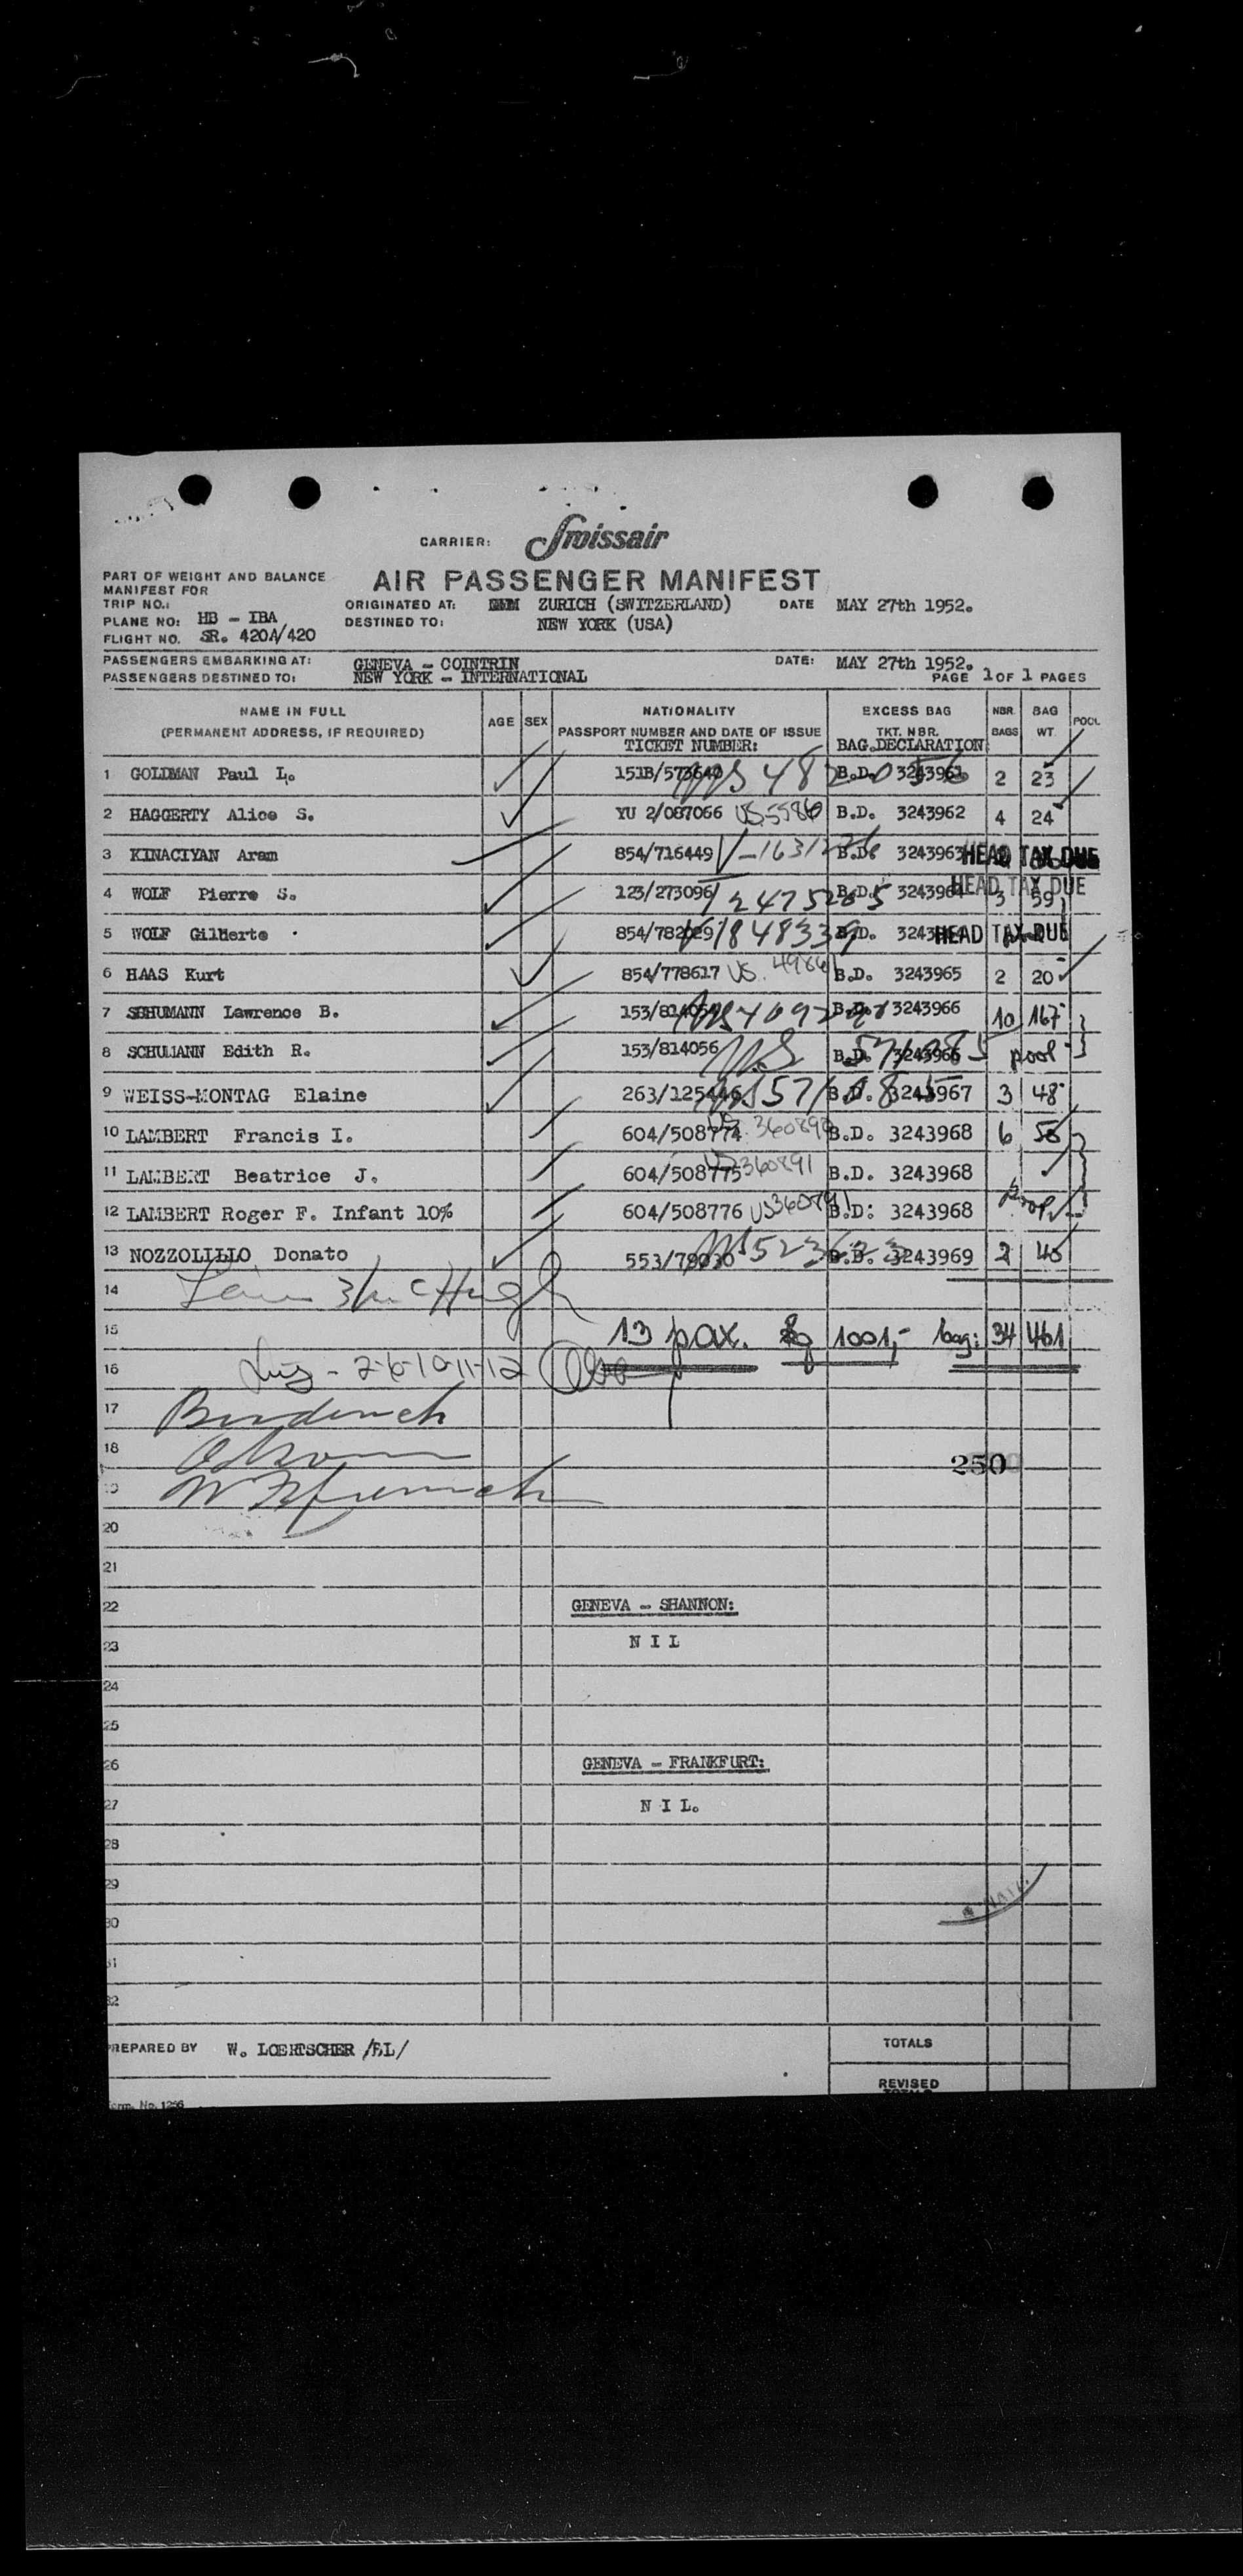 CARRIER: Swissair
PART OF WEIGHT AND BALANCE
MANIFEST FOR
AIR PASSENGER MANIFEST
TRIP NO.:
ORIGINATED AT: ZURICH (SWITZERLAND) DATE MAY 27th 1952.
PLANE NO: HB - IBA
DESTINED TO: NEW YORK (USA)
FLIGHT NO. SR. 420A/420
PASSENGERS EMBARKING AT: GENEVA - COINTRIN DATE: MAY 27th 1952.
PASSENGERS DESTINED TO: NEW YORK - INTERNATIONAL PAGE 1 OF 1 PAGES
NAME IN FULL AGE SEX NATIONALITY EXCESS BAG NBR. BAG POOL
(PERMANENT ADDRESS, IF REQUIRED) PASSPORT NUMBER AND DATE OF ISSUE TKT. NBR. BAGS WT.
TICKET NUMBER: BAG.DECLARATION:
1 GOLDMAN Paul L. 151B/573640 B.D. 3243961 2 23
2 HAGGERTY Alice S. YU 2/087066 B.D. 3243962 4 24
3 KINACIYAN Aram 854/716449 B.D. 3243963 HEAD TAX DUE
4 WOLF Pierre S. 123/273096 B.D. 3243964 3 59 HEAD TAX DUE
5 WOLF Gilberte 854/782029 B.D. HEAD TAX DUE
6 HAAS Kurt 854/778617 US. B.D. 3243965 2 20
7 SCHUMANN Lawrence B. B.D. 3243966 10 167
8 SCHUMANN Edith R. 153/814056 B.D. 3243966 pool
9 WEISS-MONTAG Elaine B.D. 3243967 3 48
10 LAMBERT Francis I. 604/508774 US. 360890 B.D. 3243968 6 58
11 LAMBERT Beatrice J. 604/508775 US 360891 B.D. 3243968
12 LAMBERT Roger F. Infant 10% 604/508776 US 360891 B.D: 3243968 pool
13 NOZZOLILLO Donato 553/79030 B.D. 3243969 2 40
14
15 13 pax. kg 1001,- bag: 34 461
16 2-6-10-11-12
17
18
250
19
20
21
22 GENEVA - SHANNON:
23 N I L
24
25
26 GENEVA - FRANKFURT:
27 N I L.
28
29
30
31
32
PREPARED BY W. LOERTSCHER /BL/ TOTALS
REVISED
TOTALS
Form. No. 1256